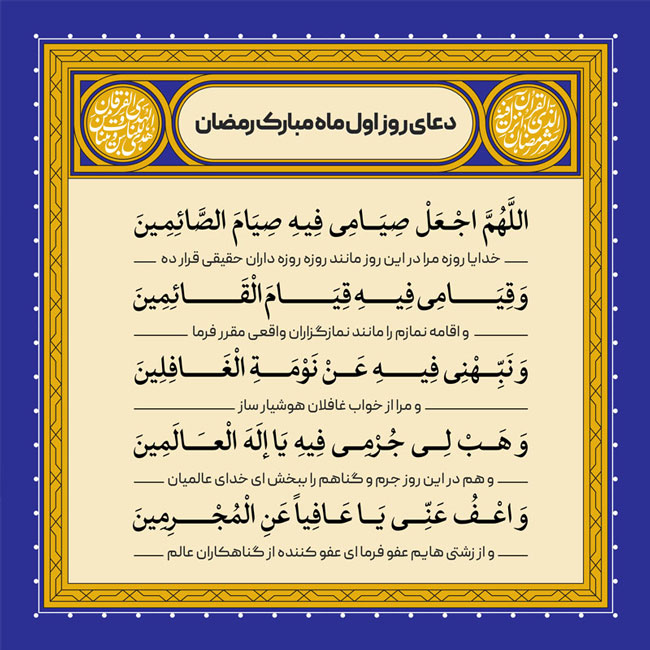 دعای روز اول ماه مبارک رمضان
شهر رمضان الذی انزل فیه القرآن
هدی للناس و بینات من الهدی و الفرقان
اللَّهُمَّ اجْعَلْ صِيَامِی فِيهِ صِيَامَ الصَّائِمِينَ
خدایا روزه مرا در این روز مانند روزه روزه داران حقیقی قرار ده
وَ قِيَامِی فِيهِ قِيَامَ الْقَائِمِينَ
و اقامه نمازم را مانند نمازگزاران واقعی مقرر فرما
وَ نَبِّهْنِی فِيهِ عَنْ نَوْمَةِ الْغَافِلِينَ
و مرا از خواب غافلان هوشیار ساز
وَ هَبْ لِی جُرْمِی فِيهِ يَا إِلَهَ الْعَالَمِينَ
و هم در این روز جرم و گناهم را ببخش ای خدای عالمیان
وَ اعْفُ عَنِّی يَا عَافِياً عَنِ الْمُجْرِمِينَ
و از زشتی هایم عفو فرما ای عفو کننده از گناهکاران عالم